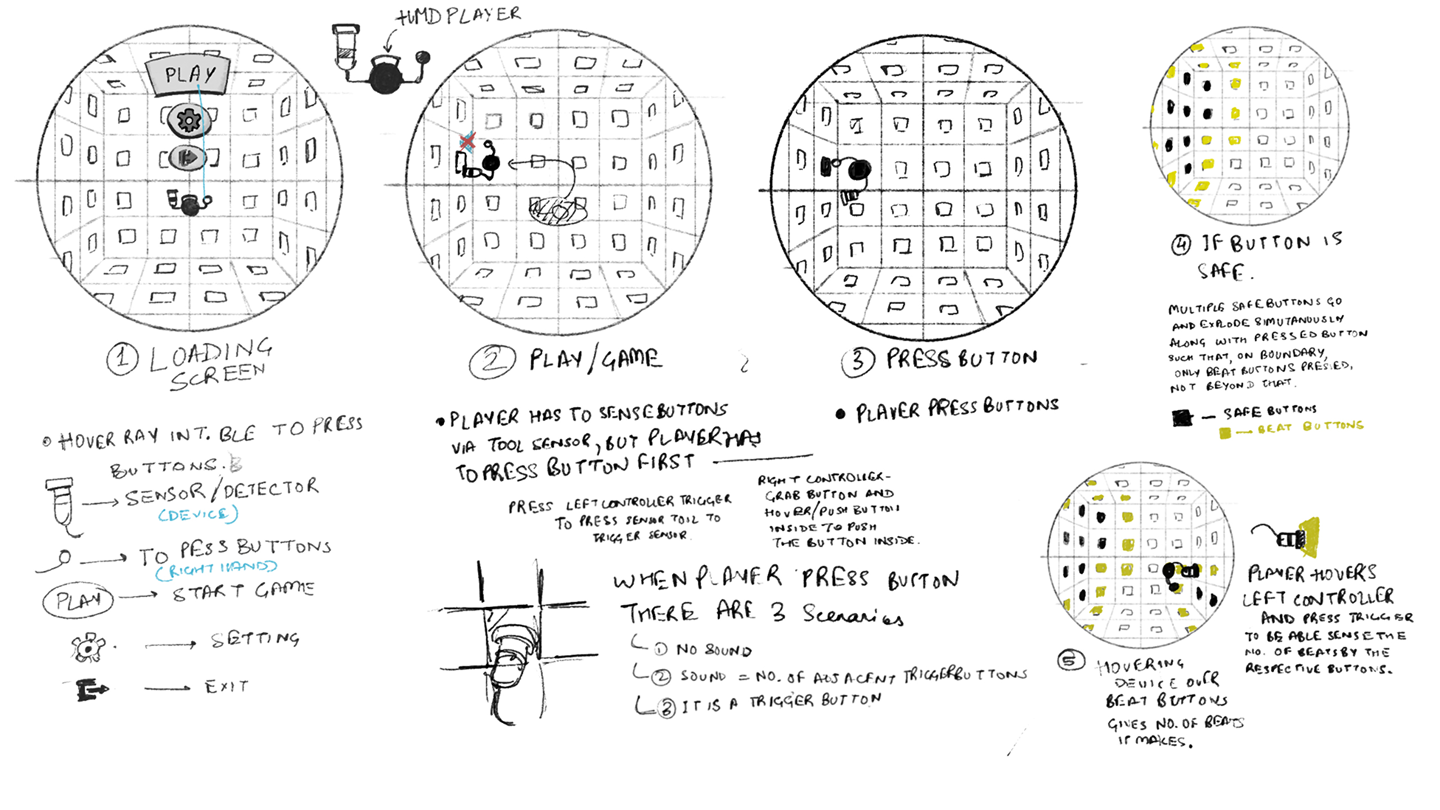 HMD PLAYER
PLAY
① LOADING
SCREEN
② PLAY/GAME
③ PRESS BUTTON
④ IF BUTTON IS
SAFE.
MULTIPLE SAFE BUTTONS GO
AND EXPLODE SIMUTANOUSLY
ALONG WITH PRESSED BUTTON
SUCH THAT, ON BOUNDARY,
ONLY BEAT BUTTONS PRESSED,
NOT BEYOND THAT.
— SAFE BUTTONS
— BEAT BUTTONS
• HOVER RAY INT. BLE TO PRESS
BUTTONS.
SENSOR/DETECTOR
(DEVICE)
TO PESS BUTTONS
(RIGHT HAND)
PLAY
START GAME
SETTING
EXIT
• PLAYER HAS TO SENSE BUTTONS
VIA TOOL SENSOR, BUT PLAYER HAS
TO PRESS BUTTON FIRST
PRESS LEFT CONTROLLER TRIGGER
TO PRESS SENSOR TOIL TO
TRIGGER SENSOR.
RIGHT CONTROLLER-
GRAB BUTTON AND
HOVER/PUSH BUTTON
INSIDE TO PUSH
THE BUTTON INSIDE.
• PLAYER PRESS BUTTONS
WHEN PLAYER PRESS BUTTON
THERE ARE 3 Scenarios
① NO SOUND
② SOUND = NO. OF ADJACENT TRIGGER BUTTONS
③ IT IS A TRIGGER BUTTON
⑤ HOVERING
DEVICE OVER
BEAT BUTTONS
GIVES NO. OF BEATS
IT MAKES.
PLAYER HOVERS
LEFT CONTROLLER
AND PRESS TRIGGER
TO BE ABLE SENSE THE
NO. OF BEATS BY THE
RESPECTIVE BUTTONS.